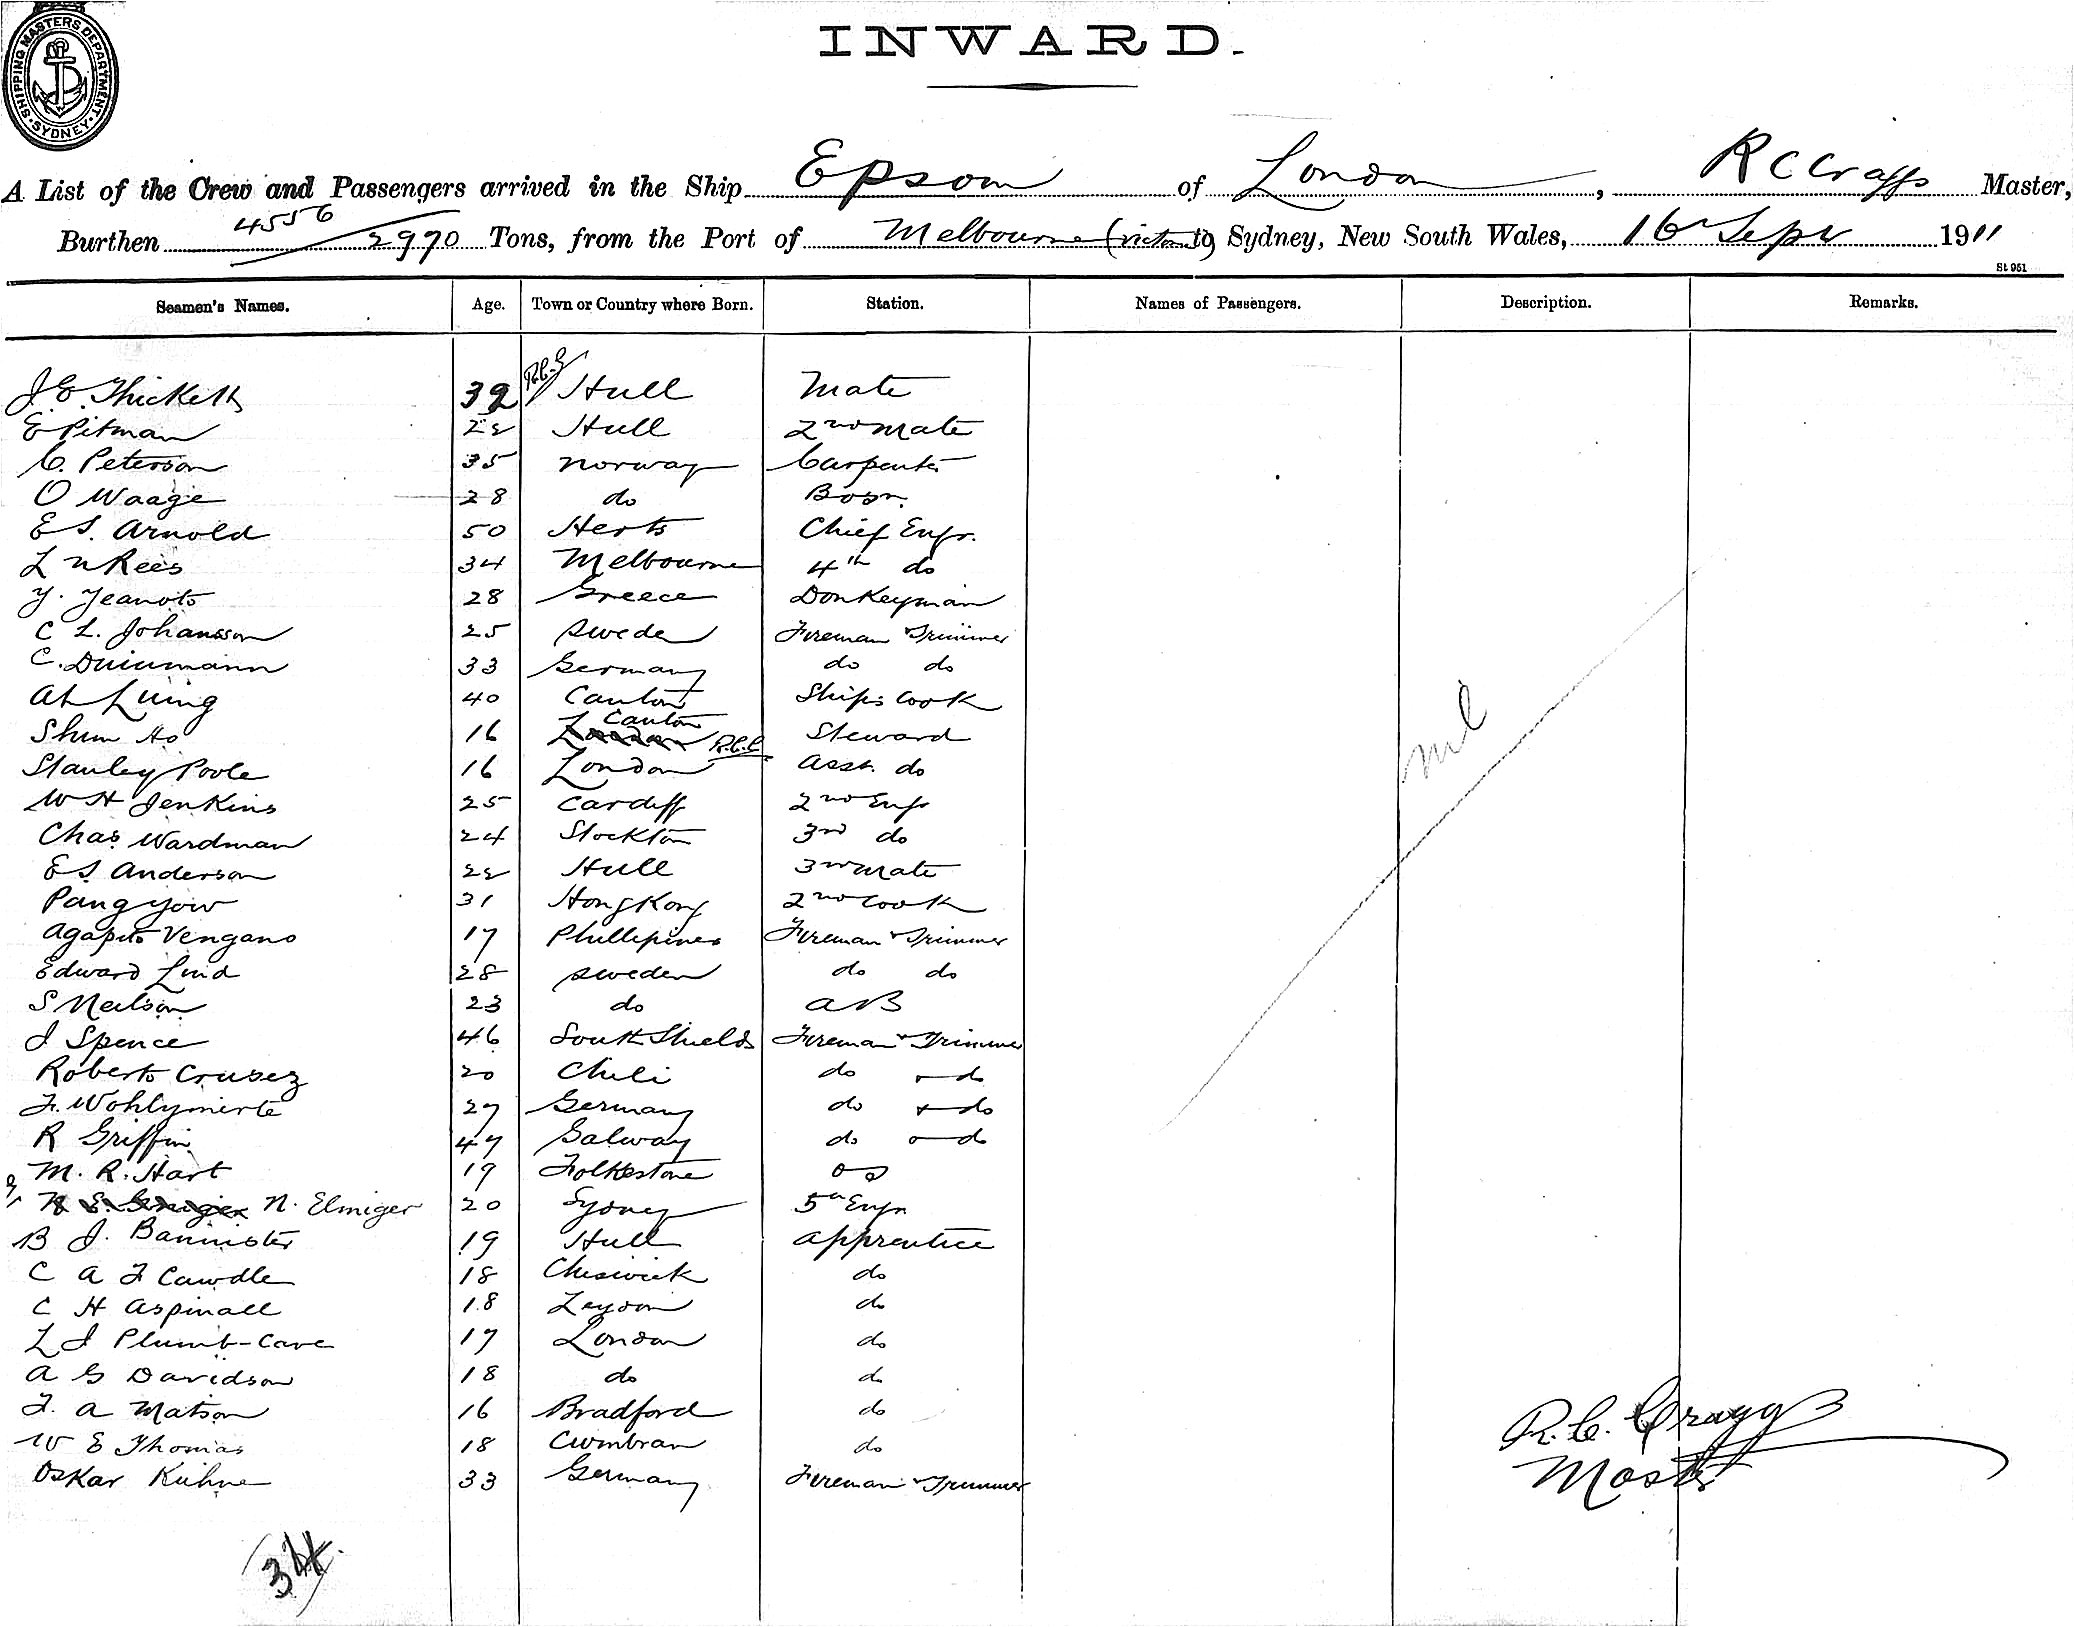 SHIPPING MASTERS DEPARTMENT. SYDNEY.
INWARD.
A List of the Crew and Passengers arrived in the Ship Epsom of London, R C Craggs Master,
Burthen 4556 2970 Tons, from the Port of Melbourne (Victoria) to Sydney, New South Wales, 16 Sept 1911
St 951
Seamen's Names. Age. Town or Country where Born. Station. Names of Passengers. Description. Remarks.
J. E. Thickett 39 Hull Mate
E Pitman 22 Hull 2nd Mate
C. Peterson 35 Norway Carpenter
O Waage 28 do Bosn.
E S. Arnold 50 Herts Chief Engr.
L N Rees 34 Melbourne 4th do
Y. Jeanoto 28 Greece Donkeyman
C L. Johansson 25 Sweden Fireman & Trimmer
C. 33 Germany do do
Ah Lung 40 Canton Ships Cook
Shum Ho 16 Canton R.C.C Steward
Stanley Poole 16 London Asst. do
W H Jenkins 25 Cardiff 2nd Engr
Chas Wardman 24 Stockton 3rd do
E S Anderson 22 Hull 3rd Mate
Pang yow 31 Hong Kong 2nd Cook
Agapito Vengano 17 Phillipines Fireman & Trimmer
Edward Lind 28 Sweden do do
S Neilson 23 do AB
J Spence 46 South Shields Fireman & Trimmer
Roberto Crusez 20 Chili do & do
F. 27 Germany do & do
R Griffin 47 Galway do & do
M. R. Hart 19 Folkestone OS
N. Elmiger 20 Sydney 5th Engr
B J. Bannister 19 Hull Apprentice
C A F Cawdle 18 Chiswick do
C H Aspinall 18 Leyton do
L J Plumb-Cave 17 London do
A G Davidson 18 do do
F. A Matson 16 Bradford do
W E Thomas 18 Cwmbran do
Oskar Kuhne 33 Germany Fireman & Trimmer
nil
R. C. Cragg
Master
34.